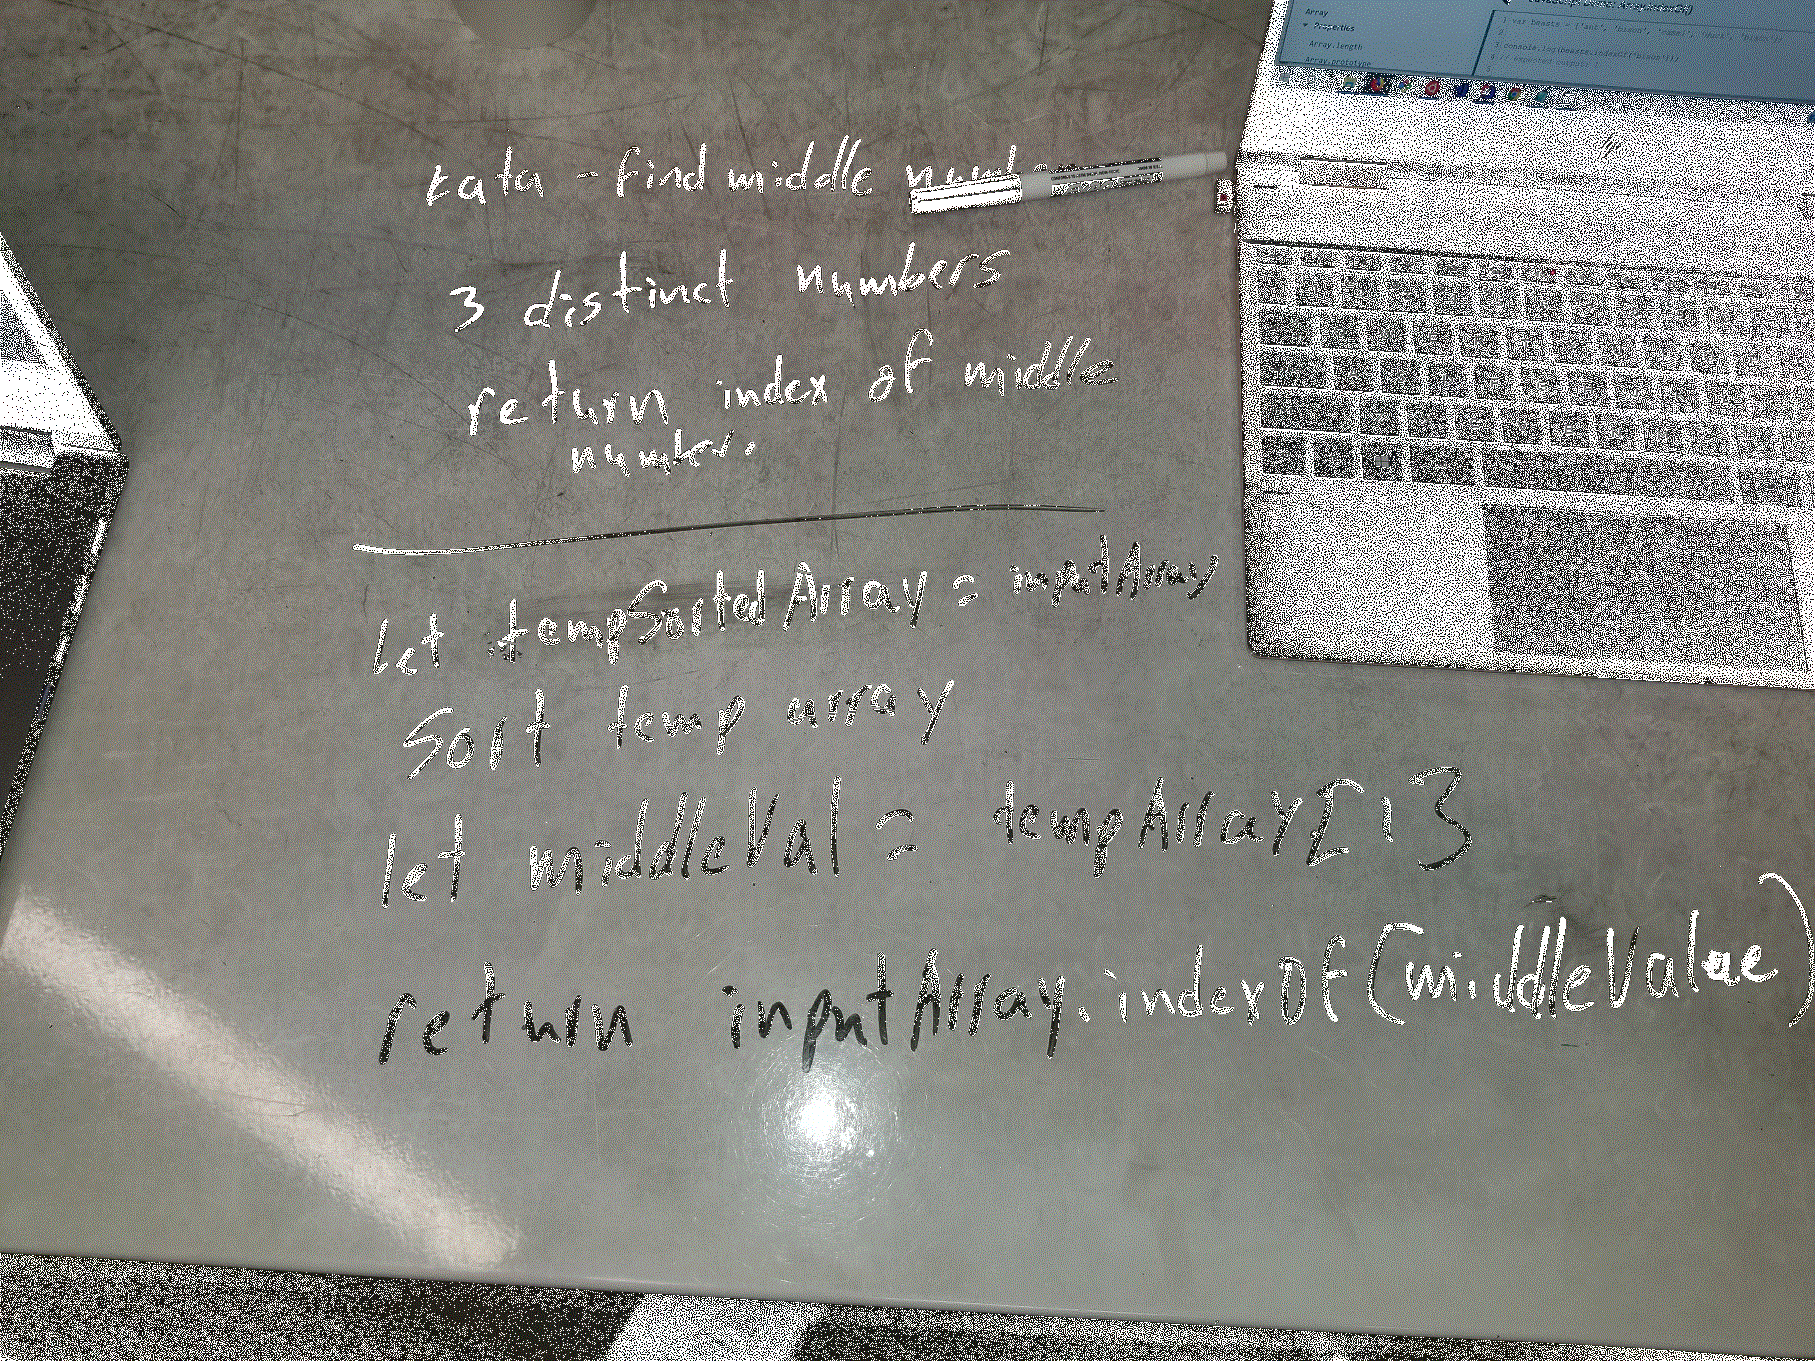 Kata - find middle
3 distinct numbers
return index of middle
number.
let tempSortedArray = inputArray
Sort temp array
let middleVal = tempArray[1]
return inputArray.indexOf(middleValue)
Array
Properties
Array.length
Array.prototype
1 var beasts = ['ant', 'bison', 'camel',
2
3 console.log(beasts.indexOf('bison'));
4 // expected output: